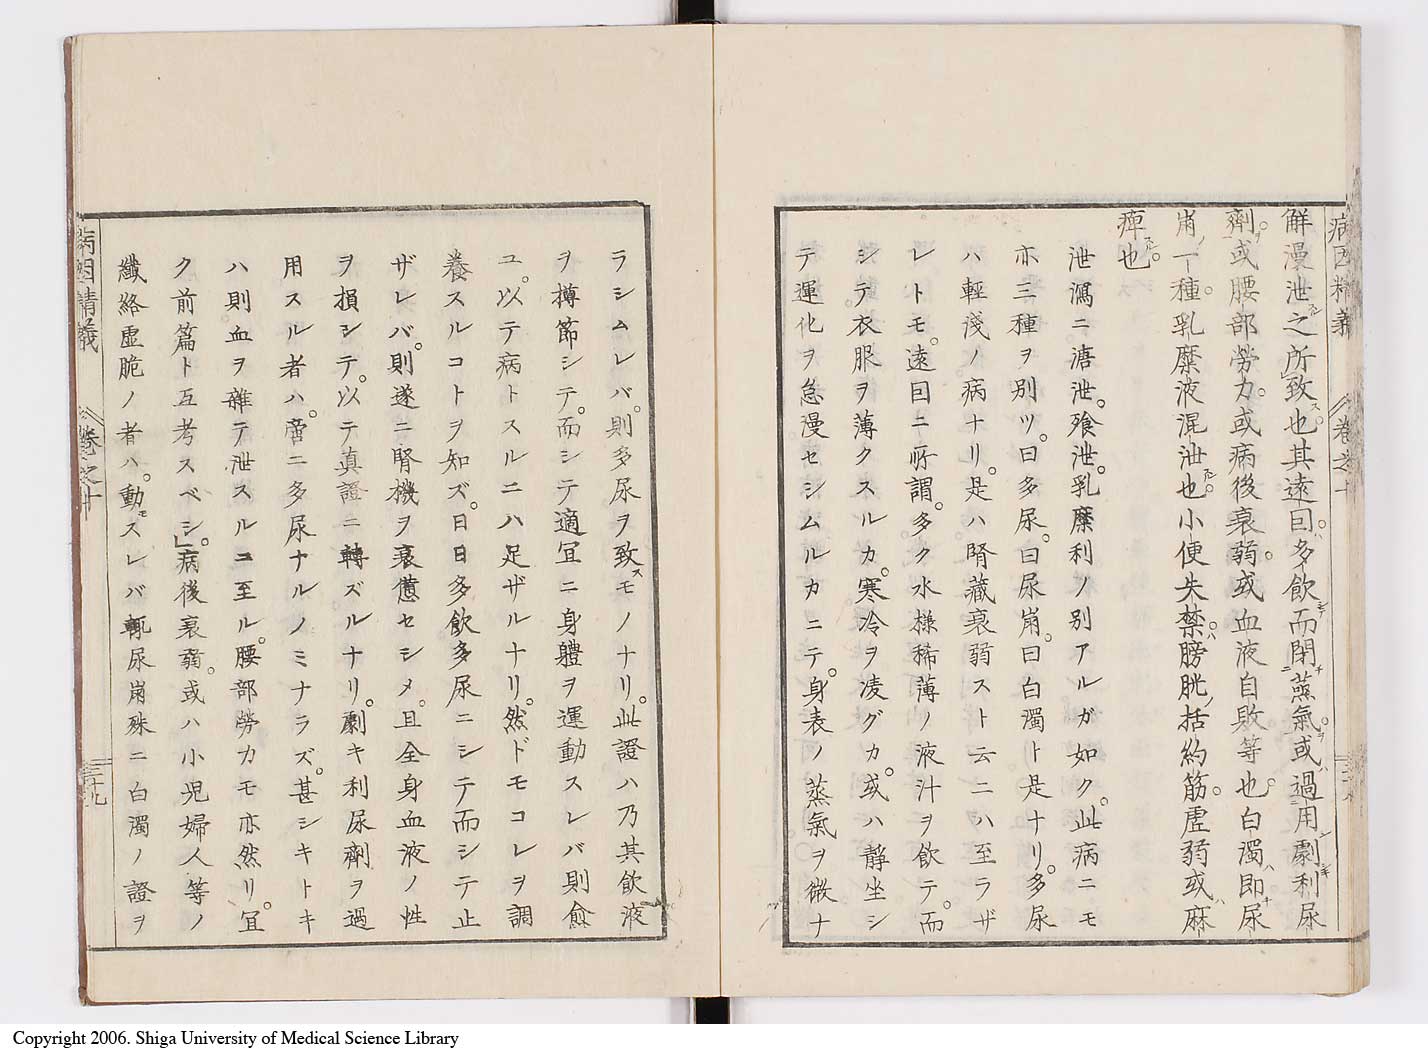 病因精義 卷之十
解漫泄之所致也其遠因多飲而閉蒸氣或過用劇利尿
劑或腰部勞力或病後衰弱或血液自敗等也白濁即尿
崩ノ一種乳糜液混泄也小便失禁膀胱括約筋虛弱或麻
痺也
泄瀉ニ溏泄飱泄乳糜利ノ別アルガ如ク此病ニモ
亦三種ヲ別ツ曰多尿曰尿崩曰白濁ト是ナリ多尿
ハ輕淺ノ病ナリ是ハ腎藏衰弱スト云ニハ至ラザ
レトモ遠因ニ所謂多ク水樣稀薄ノ液汁ヲ飲テ而
シテ衣服ヲ薄クスルカ寒冷ヲ凌グカ或ハ靜坐シ
テ運化ヲ怠漫セシムルカニテ身表ノ蒸氣ヲ微ナ
ラシムレバ則多尿ヲ致スモノナリ此證ハ乃其飲液
ヲ撙節シテ而シテ適宜ニ身體ヲ運動スレバ則愈
ユ以テ病トスルニハ足ザルナリ然ドモコレヲ調
養スルコトヲ知ズ日日多飲多尿ニシテ而シテ止
ザレバ則遂ニ腎機ヲ衰憊セシメ且全身血液ノ性
ヲ損シテ以テ真證ニ轉ズルナリ劇キ利尿劑ヲ過
用スル者ハ啻ニ多尿ナルノミナラズ甚シキトキ
ハ則血ヲ雜テ泄スルニ至ル腰部勞力モ亦然リ宜
ク前篇ト互考スベシ」病後衰弱或ハ小児婦人等ノ
纖絡虛脆ノ者ハ動モスレバ輒尿崩殊ニ白濁ノ證ヲ
病因精義 卷之十 二十九
Copyright 2006. Shiga University of Medical Science Library